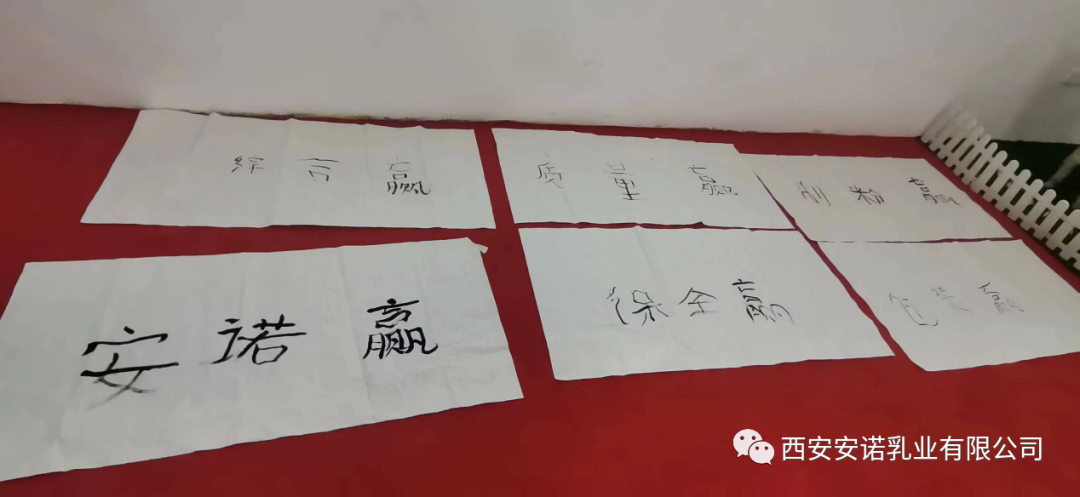 综合赢
质量赢
制粉赢
安诺赢
保全赢
包装赢
西安安诺乳业有限公司